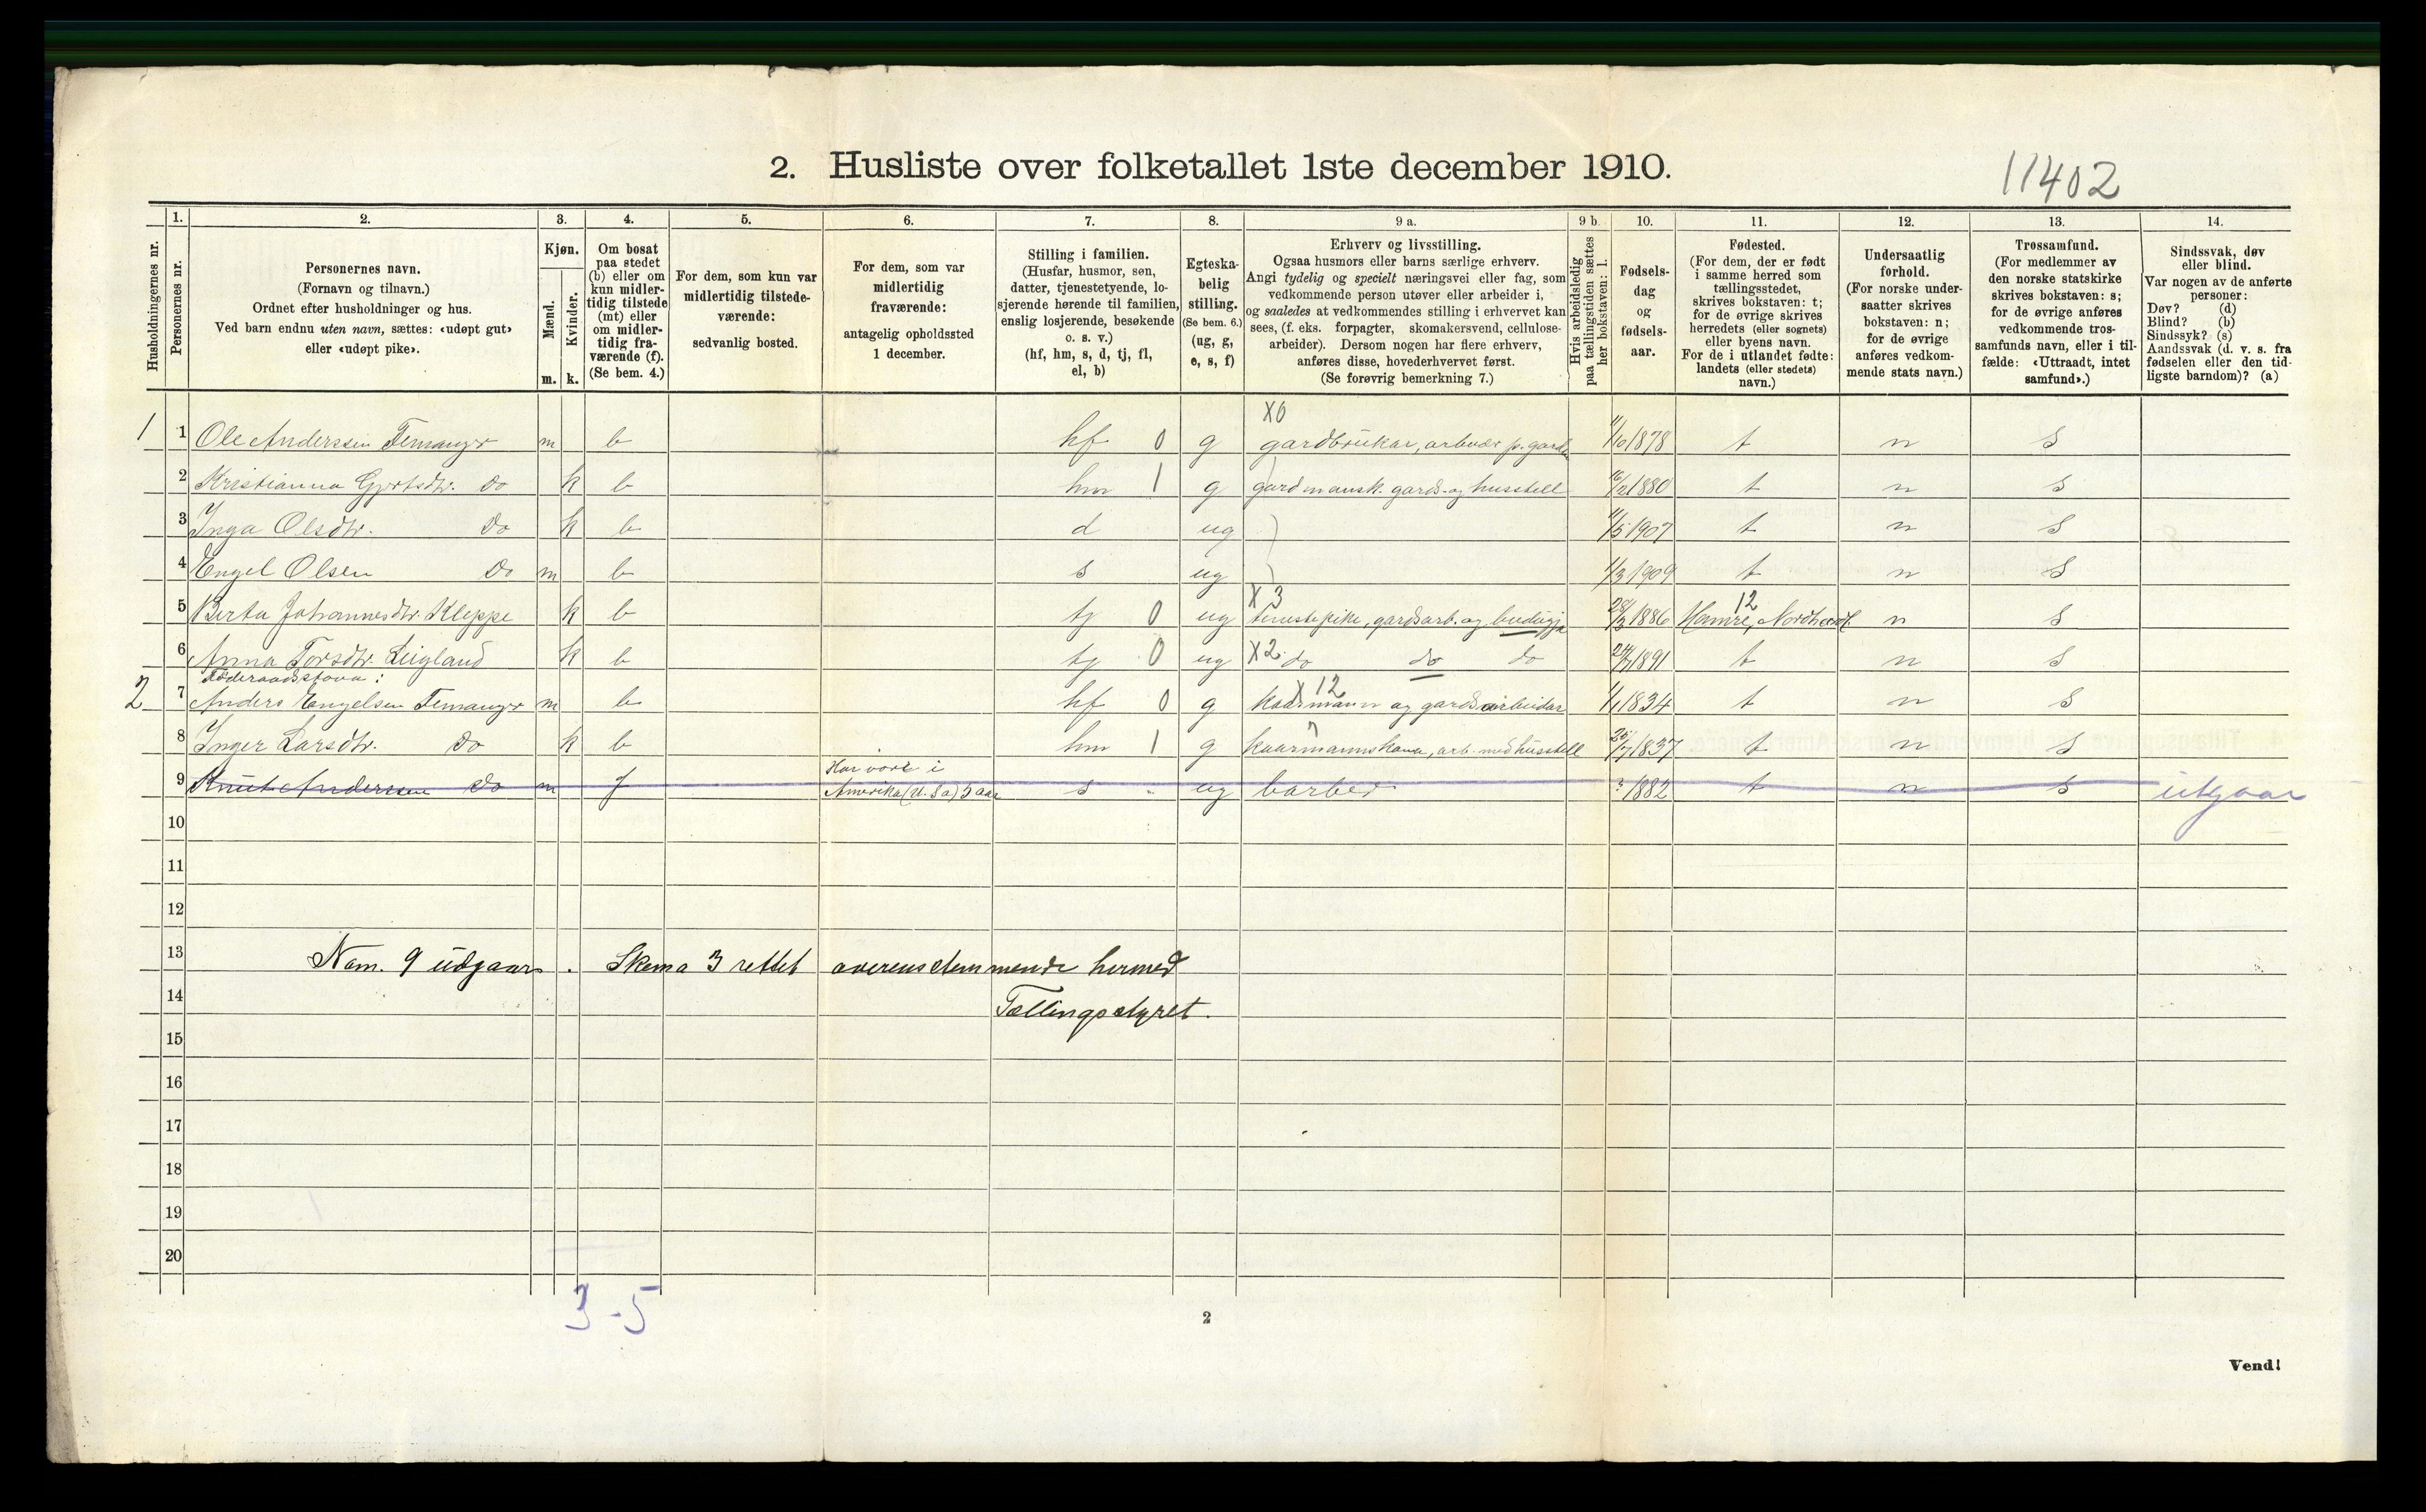 2. Husliste over folketallet 1ste december 1910.
11402
1. 2. 3. 4. 5. 6. 7. 8. 9 a. 9 b. 10. 11. 12. 13. 14.
Husholdningernes nr.
Personernes nr.
Personernes navn.
(Fornavn og tilnavn.)
Ordnet efter husholdninger og hus.
Ved barn endnu uten navn, sættes: «udøpt gut»
eller «udøpt pike».
Kjøn.
Mænd.
Kvinder.
m. k.
Om bosat
paa stedet
(b) eller om
kun midler-
tidig tilstede
(mt) eller
om midler-
tidig fra-
værende (f).
(Se bem. 4.)
For dem, som kun var
midlertidig tilstede-
værende:
sedvanlig bosted.
For dem, som var
midlertidig
fraværende:
antagelig opholdssted
1 december.
Stilling i familien.
(Husfar, husmor, søn,
datter, tjenestetyende, lo-
sjerende hørende til familien,
enslig losjerende, besøkende
o. s. v.)
(hf, hm, s, d, tj, fl,
el, b)
Egteska-
belig
stilling.
(Se bem. 6.)
(ug, g,
e, s, f)
Erhverv og livsstilling.
Ogsaa husmors eller barns særlige erhverv.
Angi tydelig og specielt næringsvei eller fag, som
vedkommende person utøver eller arbeider i,
og saaledes at vedkommendes stilling i erhvervet kan
sees, (f. eks. forpagter, skomakersvend, cellulose-
arbeider). Dersom nogen har flere erhverv,
anføres disse, hovederhvervet først.
(Se forøvrig bemerkning 7.)
Hvis arbeidsledig
paa tællingstiden sættes
her bokstaven: l.
Fødsels-
dag
og
fødsels-
aar.
Fødested.
(For dem, der er født
i samme herred som
tællingsstedet,
skrives bokstaven: t;
for de øvrige skrives
herredets (eller sognets)
eller byens navn.
For de i utlandet fødte:
landets (eller stedets)
navn.)
Undersaatlig
forhold.
(For norske under-
saatter skrives
bokstaven: n;
for de øvrige
anføres vedkom-
mende stats navn.)
Trossamfund.
(For medlemmer av
den norske statskirke
skrives bokstaven: s;
for de øvrige anføres
vedkommende tros-
samfunds navn, eller i til-
fælde: «Uttraadt, intet
samfund».)
Sindssvak, døv
eller blind.
Var nogen av de anførte
personer:
Døv? (d)
Blind? (b)
Sindssyk? (s)
Aandssvak (d. v. s. fra
fødselen eller den tid-
ligste barndom)? (a)
X0
1 1 Ole Anderssen Temanger m b hf 0 g gardbrukar, arbeider p. garden 1878 t n s
2 Kristianna Gjertsdtr. do k b hm 1 g gardmansk. gards- og husstell 16/2 1880 t n s
3 Inga Olsdtr. do k b d ug 1907 t n s
4 Engel Olsen do m b s ug 1909 t n s
X 3 12
5 Berta Johannesdtr. Kleppe k b tj 0 ug tenestepike, gardsarb. og budeigja 1886 Hamre, Nordhordl. n s
6 Anna Torsdtr. Leigland k b tj 0 ug X2 do do do 1891 t n s
Føderaadsstova:
X 12
2 7 Anders Engelsen Temanger m b hf 0 g kaarmann og gardsarbeidar 1/1 1834 t n s
8 Inger Larsdtr. do k b hm 1 g kaarmannskona, arb. med husstell 1837 t n s
Har vore i
9 Knut Anderssen do m f Amerika (U.S.a) 5 aar s ug barber ? 1882 t n s utgaar
10
11
12
13 Nom. 9 udgaar. Skema 3 rettet overensstemmende hermed
14 Tællingsstyret.
15
16
17
18
19
20
3-5
2
Vend!